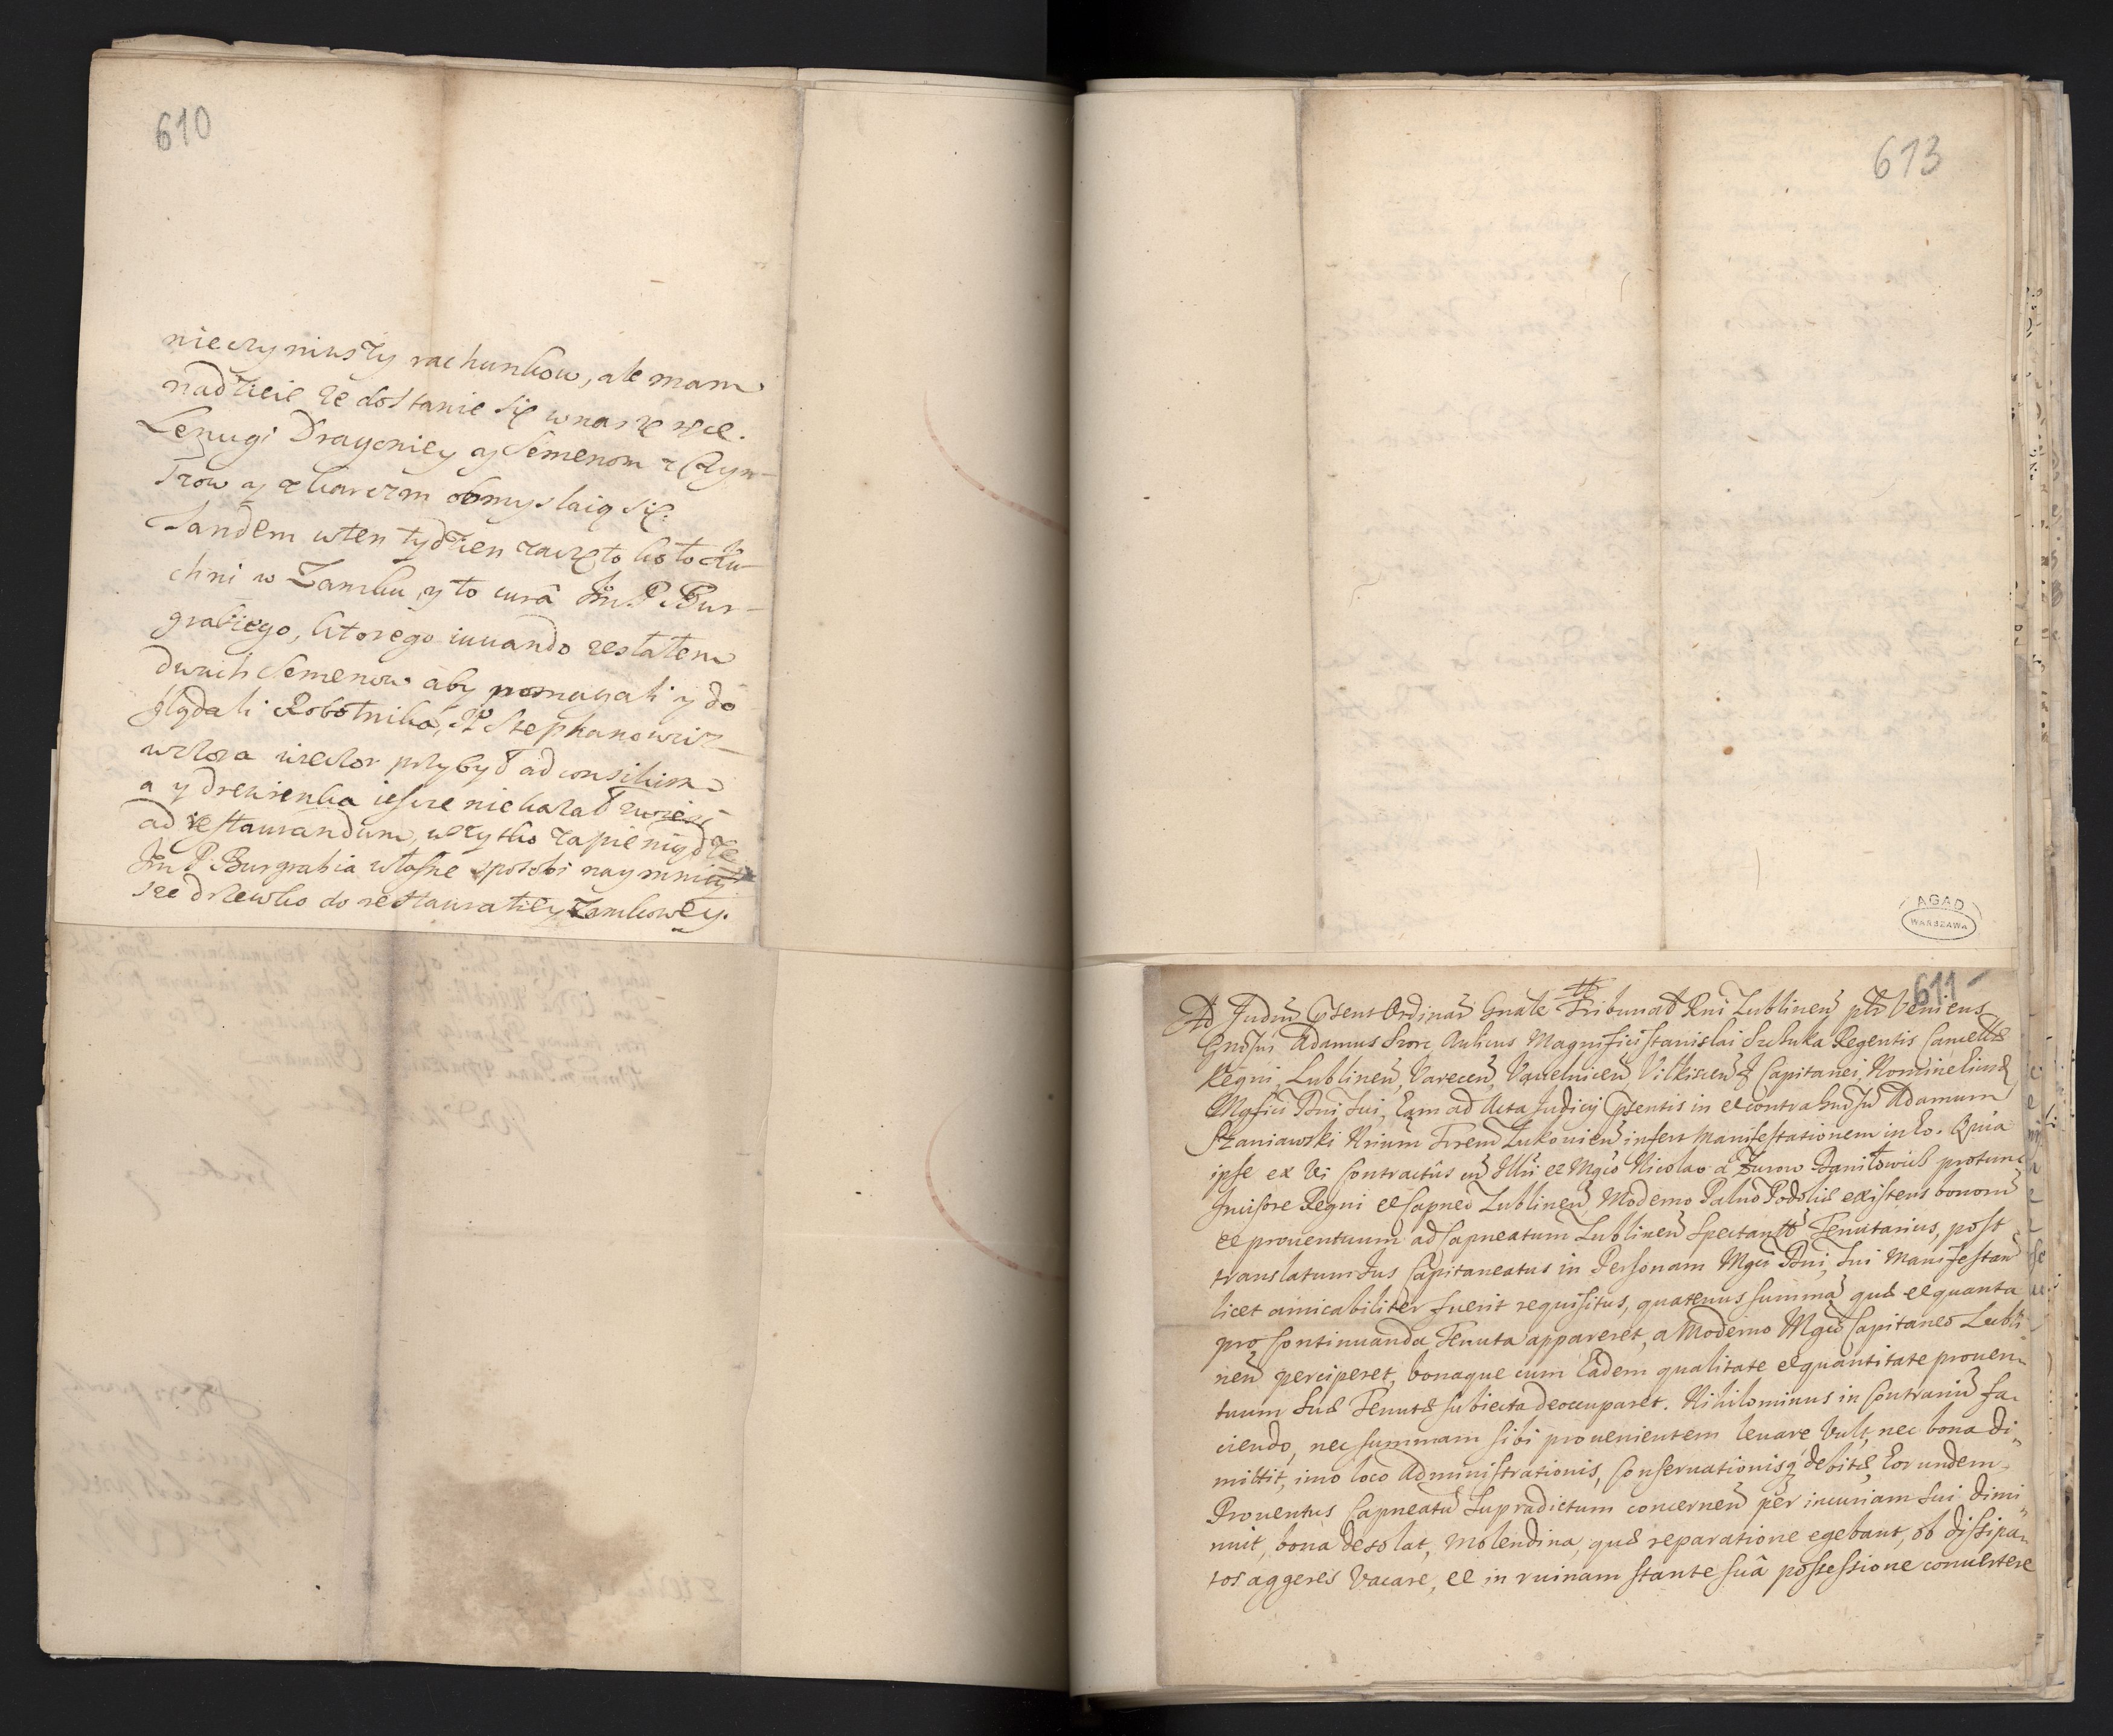 610
nieczyniwszy rachunkow, ale mam
nadzieię ze dostanie się w nasze ręce.
Lenugi Dragoniey y Semenom z Czyn-
szow y z karczm obmyslaią się.
Tandem w ten tydzien zaczęto koło Ku-
chni w Zamku, y to curâ Jm P Bur-
grabiego, ktorego iuuando zesłałem
dwuch Semenow aby pomagali y do
glądali Robotnika, JP Stephanowicz
wczora wieczor przybył ad consilium
a y drewienka iescze nie kazał zwieść
ad restaurandum, wszytko za pieniądze
Jm P. Burgrabia własne sposobi naymniey
sze drzewko do restauratiey Zamkowey.
613
AGAD
WARSZAWA
611
Ad Judiū pñsens Ordinar Gnale Tribunal Rni Lublinen ptr Veniens
Gnosus Adamus Aulicus Magnifici Stanislai Szczuka Regentis Cancellæ
Regni, Lublinen, Varecen, Vawelnicen, Vilkiscen Capitanei, Nomine Eiusd
Mgfici Dni Sui, Eam ad Acta Judicij pñsentis in et contra Gnosu Adamum
Szaniawski Terren Lukovien infert Manifestationem in Eo. Quia
ipse ex Vi Contractus cū Illri et Mgco Nicolao a Zurow Daniłowicz protunc
Incisore Regni et Capneo Lublinen, Moderno Palno Podoliæ existens bonorū
et prouentuum ad Capneatum Lublinen Spectantt Tenutarius, post
translatum Jus Capitaneatus in Personam Mgci Dni, Sui Manifestan
licet amicabiliter fuerit requisitus, quatenus summā quæ et quanta
pro Continuanda Tenuta appareret, a Moderno Mgco Capitaneo Lubli-
nen perciperet, bonaque cum Eadem qualitate et quantitate prouen-
tuum suæ Tenutæ subiecta deoccuparet. Nihilominus in Contrariū fa-
ciendo, nec summam sibi prouenientem leuare Vult, nec bona di-
mittit, imo loco Administrationis, Conseruationisq debitæ, Eorundem
Prouentus Capneatū Supradictum concernen per incuriam sui dimi-
nuit, bona desolat, Molendina, quæ reparatione egebant, ob dissipa-
tos aggeres Vacare, et in ruinam stante suâ possessione conuertere